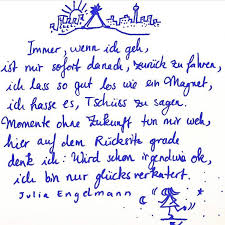 Immer, wenn ich geh,
ist mir sofort danach, zurück zu fahren,
ich lass so gut los wie ein Magnet,
ich hasse es, Tschüss zu sagen.
Momente ohne Zukunft tun mir weh,
hier auf dem Rücksitz grade
denk ich: Wird schon irgendwie ok,
ich bin nur glücksverkatert.
Julia Engelmann